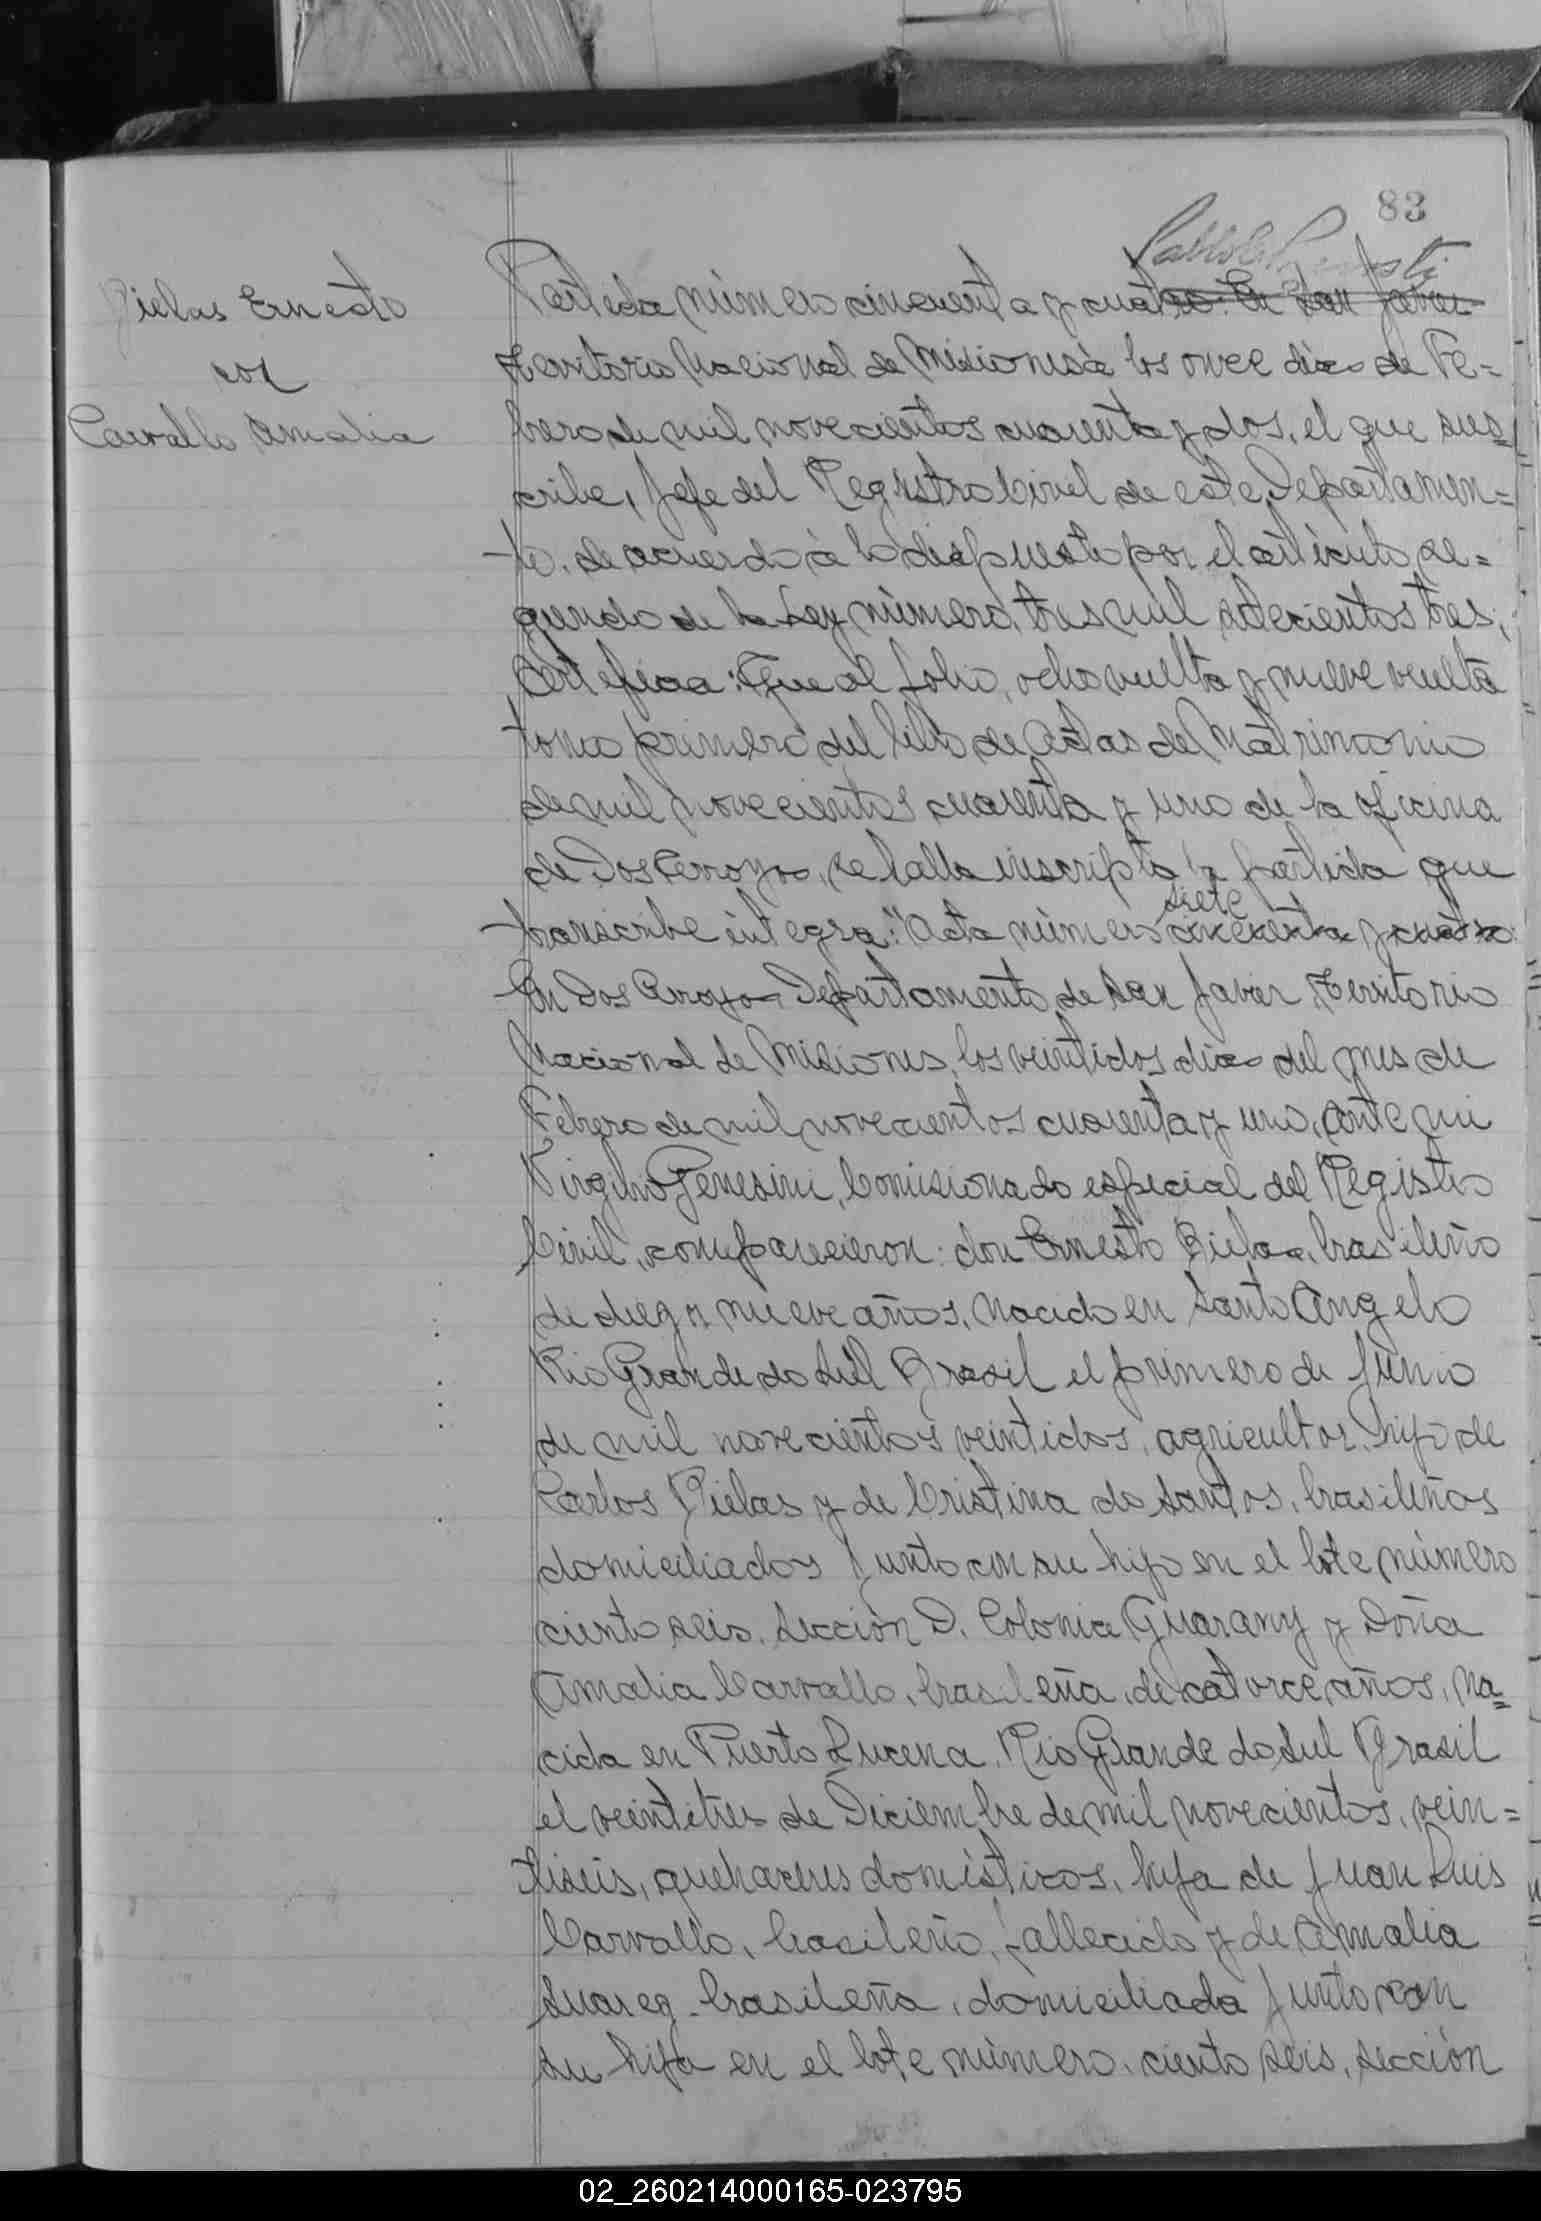 83
Pielas Ernesto
con
Carvallo Amalia
Partida número cincuenta y cuatro. En San Javier
Territorio Nacional de Misiones á los once dias de Fe=
brero de mil novecientos cuarenta y dos, el que sus=
cribe, Jefe del Registro Civil de este Departamen=
to, de acuerdo á lo dispuesto por el artículo se=
gundo de la Ley número, tres mil setecientos tres,
Certifica: Que al folio, ocho vuelta y nueve vuelta
tomo primero del libro de Actas de Matrimonio
de mil novecientos cuarenta y uno de la oficina
de Dos Arroyos, se halla inscripta la partida que
siete
transcribe integra: "Acta número cincuenta y cuatro:
En Dos Arroyos Departamento de San Javier, Territorio
Nacional de Misiones, los veintidos dias del mes de
Febrero de mil novecientos cuarenta y uno, ante mi
Virginio Genesini, Comisionado especial del Registro
Civil, comparecieron: don Ernesto Pielas, brasileño
de diez y nueve años, nacido en Santo Angelo
Rio Grande do Sul Brasil el primero de Junio
de mil novecientos veintidos, agricultor, hijo de
Carlos Pielas y de Cristina do Santos, brasileños
domiciliados junto con su hijo en el lote número
ciento seis, Sección D. Colonia Guarany y Doña
Amalia Carvallo, brasileña, de catorce años, na=
cida en Puerto Lucena, Rio Grande do Sul Brasil
el veintitres de Diciembre de mil novecientos, vein=
tiseis, quehaceres domésticos, hija de Juan Luis
Carvallo, brasileño, fallecido y de Amalia
Suarez, brasileña, domiciliada junto con
su hija en el lote número, ciento seis, sección
02_260214000165-023795